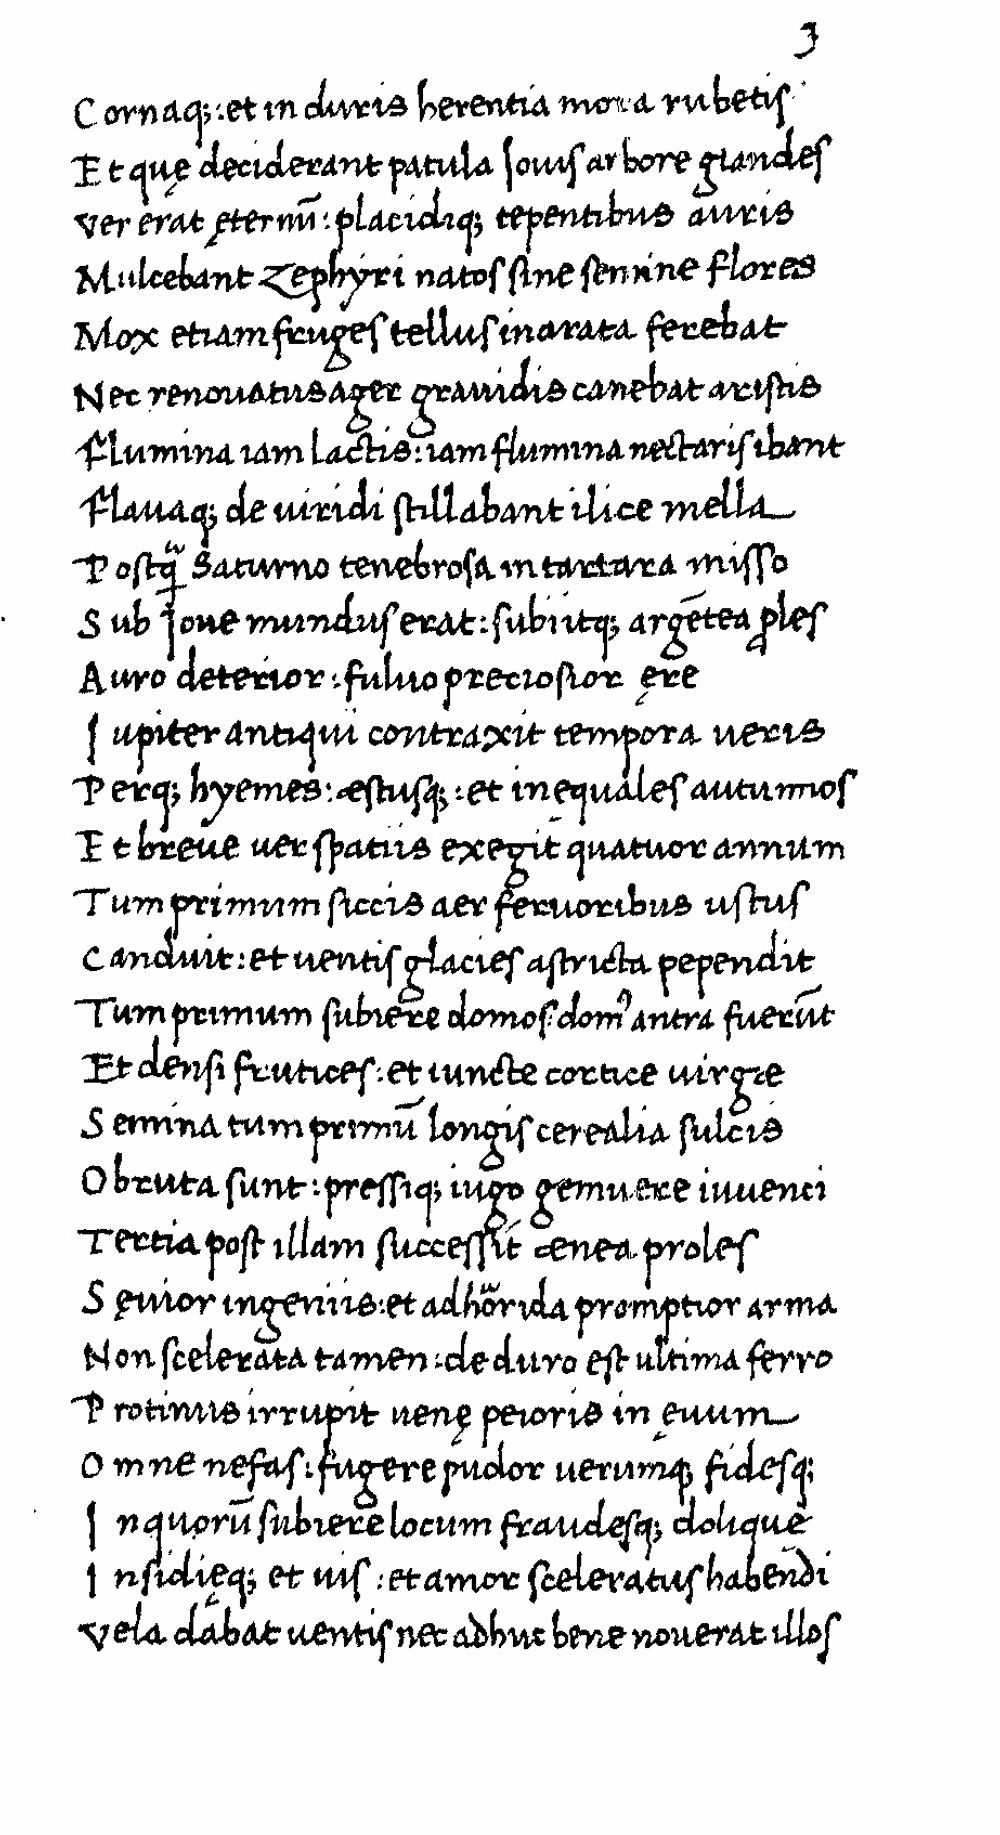 3
Cornaq; : et in duris herentia mora rubetis
Et quę deciderant patula Iouis arbore glandes
Ver erat ęternū : placidiq; tepentibus auris
Mulcebant Zephyri natos sine semine flores
Mox etiam fruges tellus inarata ferebat
Nec renouatus ager grauidis canebat aristis
Flumina iam lactis : iam flumina nectaris ibant
Flauaq; de uiridi stillabant ilice mella
Postq̃ Saturno tenebrosa in tartara misso
Sub Ioue mundus erat : subiitq; argētea ꝓles
Auro deterior : fuluo preciosior ęre
Iupiter antiqui contraxit tempora ueris
Perq; hyemes : æstusq; : et inęquales autumnos
Et breue uer spatiis exegit quatuor annum
Tum primum siccis aer feruoribus ustus
Canduit : et uentis glacies astricta pependit
Tum primum subiere domos : domꝰ antra fuerūt
Et densi frutices : et iuncte cortice uirgæ
Semina tum primū longis cerealia sulcis
Obruta sunt : pressiq; iugo gemuere iuuenci
Tertia post illam successit ænea proles
Sęuior ingeniis : et ad horrida promptior arma
Non scelerata tamen : de duro est ultima ferro
Protinus irrupit uenę peioris in ęuum
Omne nefas : fugere pudor uerumq; fidesq;
In quorū subiere locum fraudesq; dolique
Insidięq; et uis : et amor sceleratus habendi
Vela dabat uentis nec adhuc bene nouerat illos